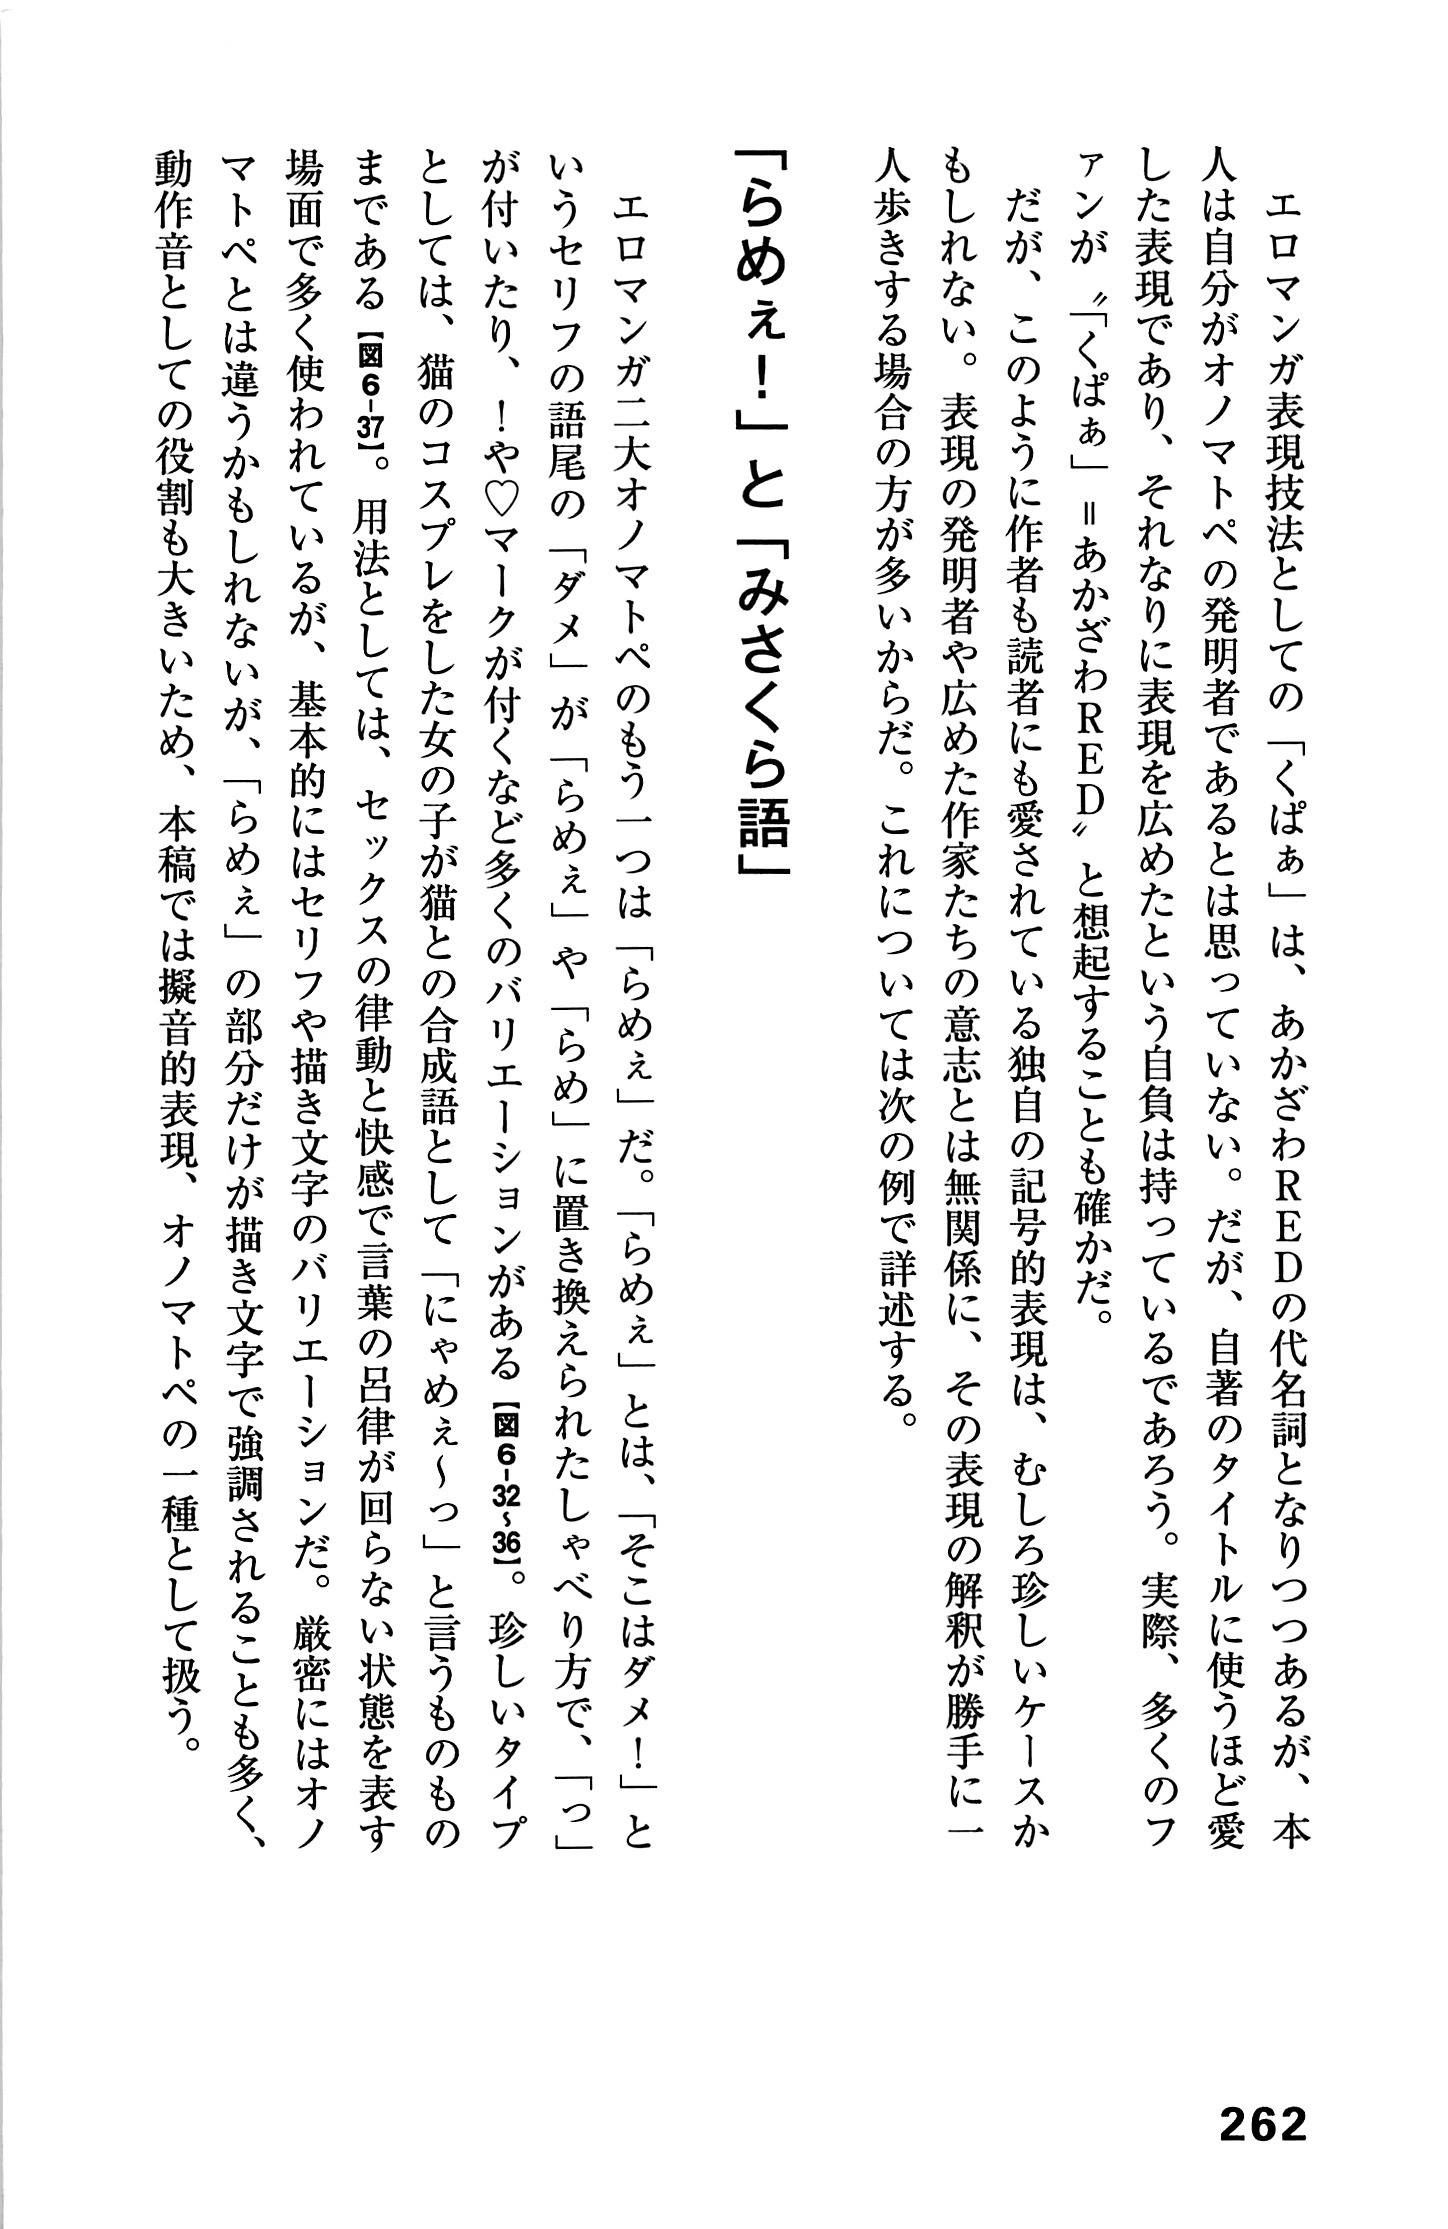 エロマンガ表現技法としての「くぱぁ」は、あかざわREDの代名詞となりつつあるが、本
人は自分がオノマトペの発明者であるとは思っていない。だが、自著のタイトルに使うほど愛
した表現であり、それなりに表現を広めたという自負は持っているであろう。実際、多くのフ
ァンが〝「くぱぁ」=あかざわRED〟と想起することも確かだ。
だが、このように作者も読者にも愛されている独自の記号的表現は、むしろ珍しいケースか
もしれない。表現の発明者や広めた作家たちの意志とは無関係に、その表現の解釈が勝手に一
人歩きする場合の方が多いからだ。これについては次の例で詳述する。
「らめぇ!」と「みさくら語」
エロマンガ二大オノマトペのもう一つは「らめぇ」だ。「らめぇ」とは、「そこはダメ!」と
いうセリフの語尾の「ダメ」が「らめぇ」や「らめ」に置き換えられたしゃべり方で、「っ」
が付いたり、!や♡マークが付くなど多くのバリエーションがある【図6-32~36】。珍しいタイプ
としては、猫のコスプレをした女の子が猫との合成語として「にゃめぇ~っ」と言うものもの
まである【図6-37】。用法としては、セックスの律動と快感で言葉の呂律が回らない状態を表す
場面で多く使われているが、基本的にはセリフや描き文字のバリエーションだ。厳密にはオノ
マトペとは違うかもしれないが、「らめぇ」の部分だけが描き文字で強調されることも多く、
動作音としての役割も大きいため、本稿では擬音的表現、オノマトペの一種として扱う。
262